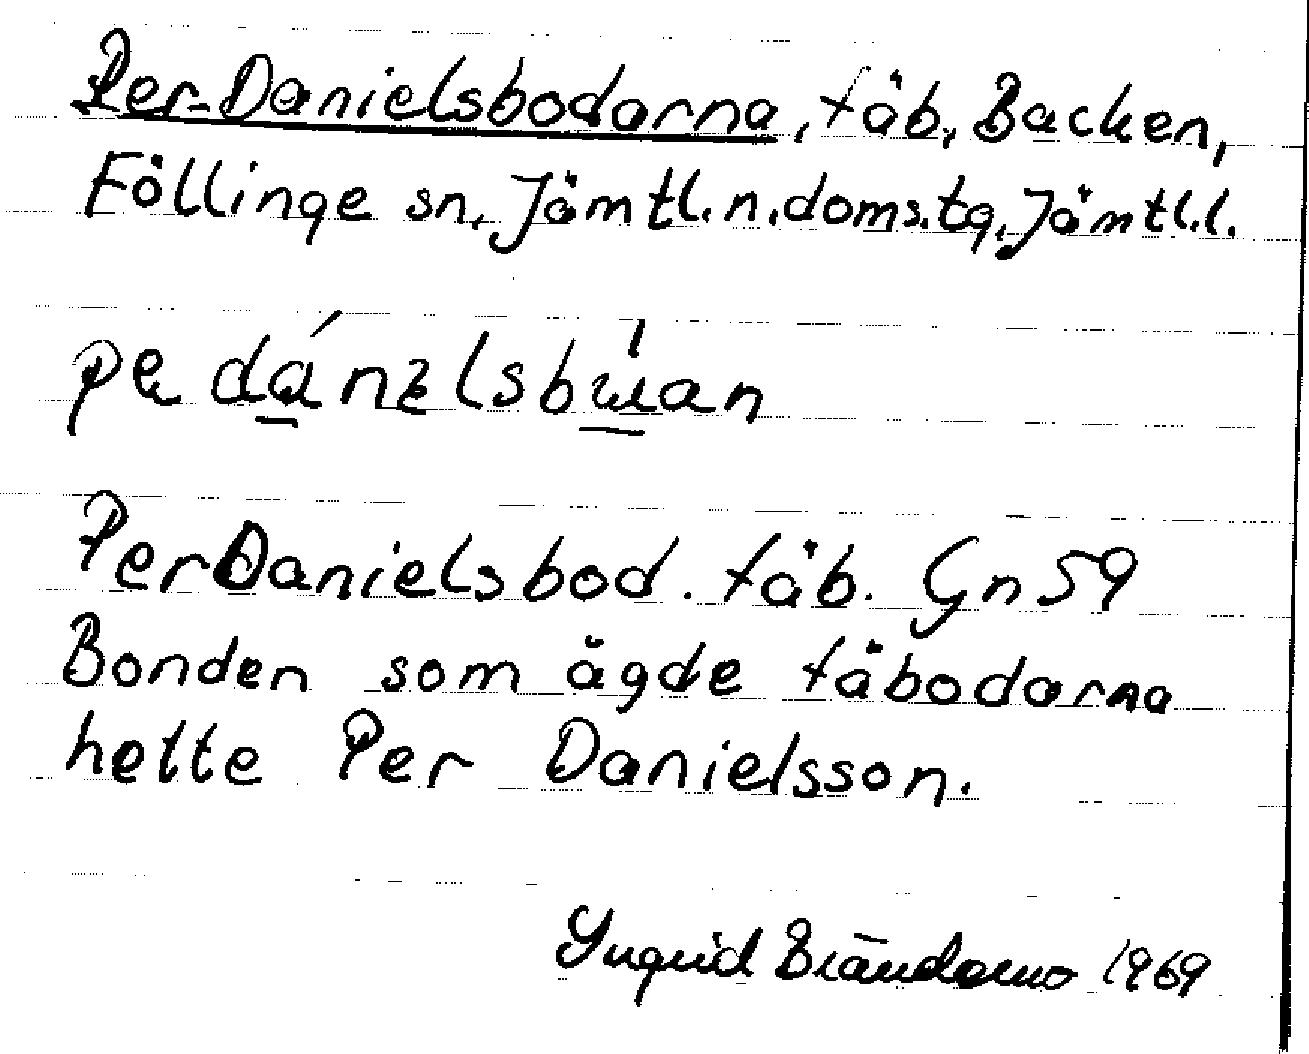 Per-Danielsbodarna, fäb, Backen,
Föllinge sn, Jämtl.n.doms.tg, Jämtl.l.
Per Danielsbod. fäb. Gn 59
Bonden som ägde fäbodarna
hette Per Danielsson.
Ingrid 1969